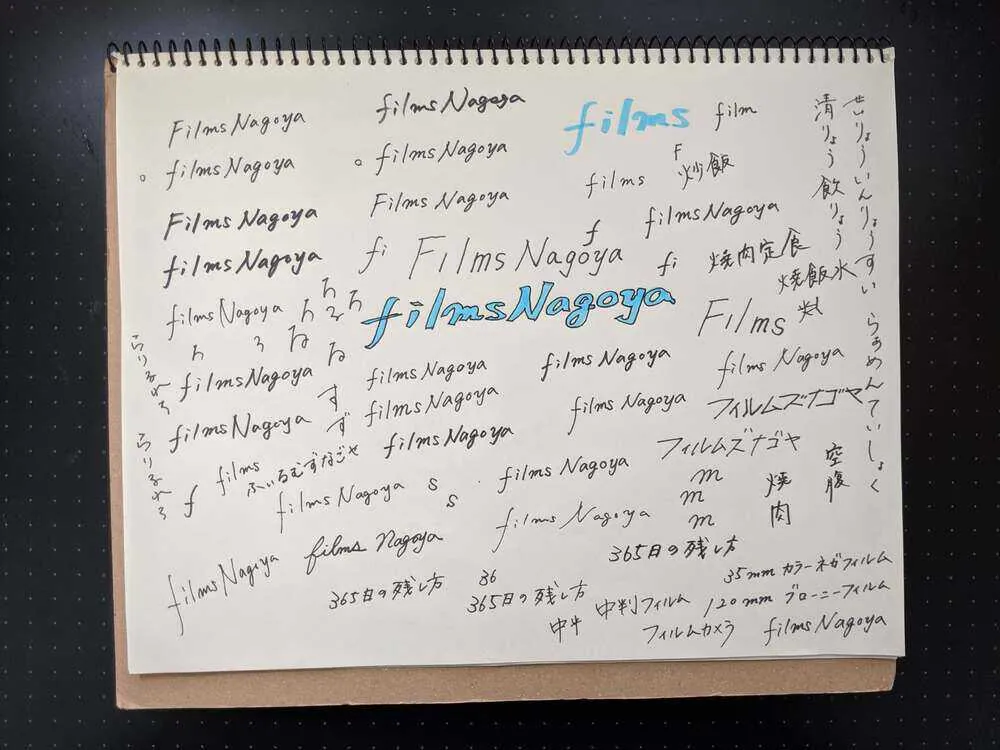 Films Nagoya
films Nagoya
films
film
films Nagoya
films Nagoya
F
炒飯
Films Nagoya
Films Nagoya
films
films Nagoya
films Nagoya
fi
Films Nagoya
f
fi
焼肉定食
焼飯水
films Nagoya
films Nagoya
Films
films Nagoya
films Nagoya
films Nagoya
films Nagoya
す
ず
films Nagoya
films Nagoya
films Nagoya
フィルムズナゴヤ
films
ふぃるむずなごや
films Nagoya
フィルムズナゴヤ
f
films Nagoya
s
s
films Nagoya
m
m
m
焼肉
空腹
films Nagoya
films Nagoya
films Nagoya
365日の残し方
365日の残し方
36
365日の残し方
中判フィルム
35mm カラーネガフィルム
120mm ブローニーフィルム
フィルムカメラ
films Nagoya
清りょう飲りょう
せいりょういんりょうすい
らぁめんていしょく
らりるれろ
らりるれろ